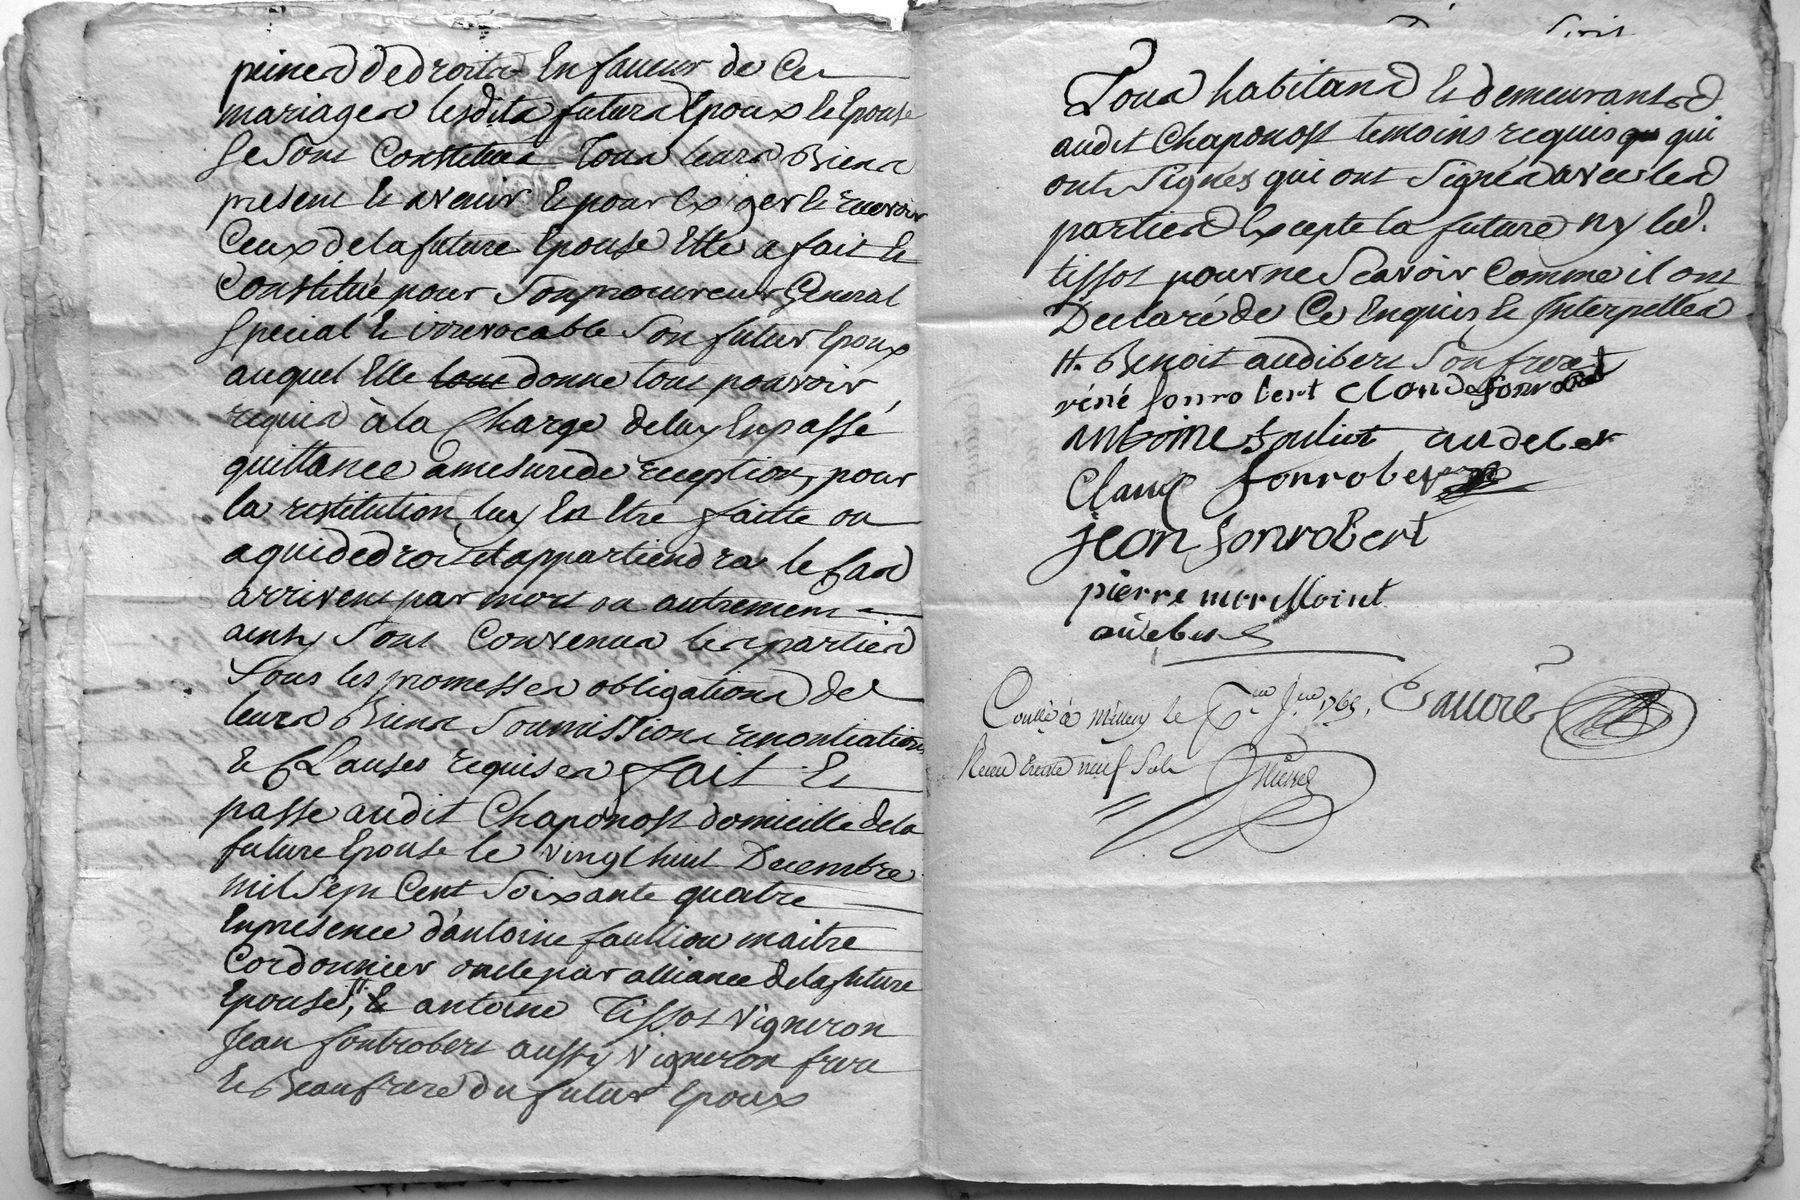 peines de droits En faveur de Ce
mariage les dits futurs Epoux & Epouse
Se Sont Constitués Tous leurs Biens
present & avenir & pour Exiger & recevoir
Ceux de la future Epouse Elle a fait &
Constitué pour Son procureur General
Special & irrevocable Son futur Epoux
auquel Elle tout donne tout pouvoir
requis à la Charge deluy En passé
quittance amesure de reception, pour
la restitution luy En Etre faitte ou
a qui de droit appartiendra le Cas
arrivent par mort ou autrement
ainsy Sont Convenus les parties
Sous les promesses obligations de
leurs Biens Soumissions renontiations
& Clauses requises fait &
passe audit Chaponost domicille de la
future Epouse le vingt huit Decembre
mil Sept Cent Soixante quatre
En presence d'antoine faullion maitre
Cordonnier oncle par alliance de la future
Epouse, H. & antoine Tissot Vigneron
Jean fontrobert aussy Vigneron frere
& Beaufrere du futur Epoux
Tous habitans & demeurants
audit Chaponost temoins requis qui
ont Signés qui ont Signés avec les
parties Excepte la future ny led.
tissot pour ne Scavoir Comme il ont
Declaré de Ce Enquis & Interpellés
H. Benoit audibert Son frere
réné fonrobert Claude fonrobert
antoine audeber
Claud fonrobert
jean fonrobert
pierre
audebert
Conllé à Millery le Jer 1765,
Receu trente neuf Sols